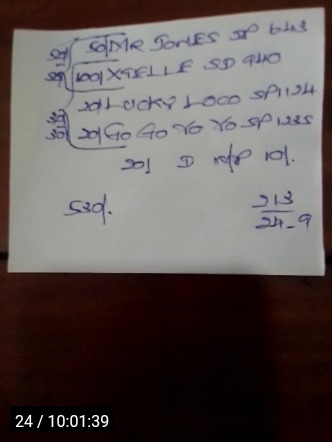 50/ 50/ MR JONES SP 643
50/ 100/ XSELLE SD 940
30/ 20/ LUCKY LOCO SP 1124
30/ 20/ GO GO YO YO SP 1235
20/ D 10/.
530/.
213
24-9
24 / 10:01:39